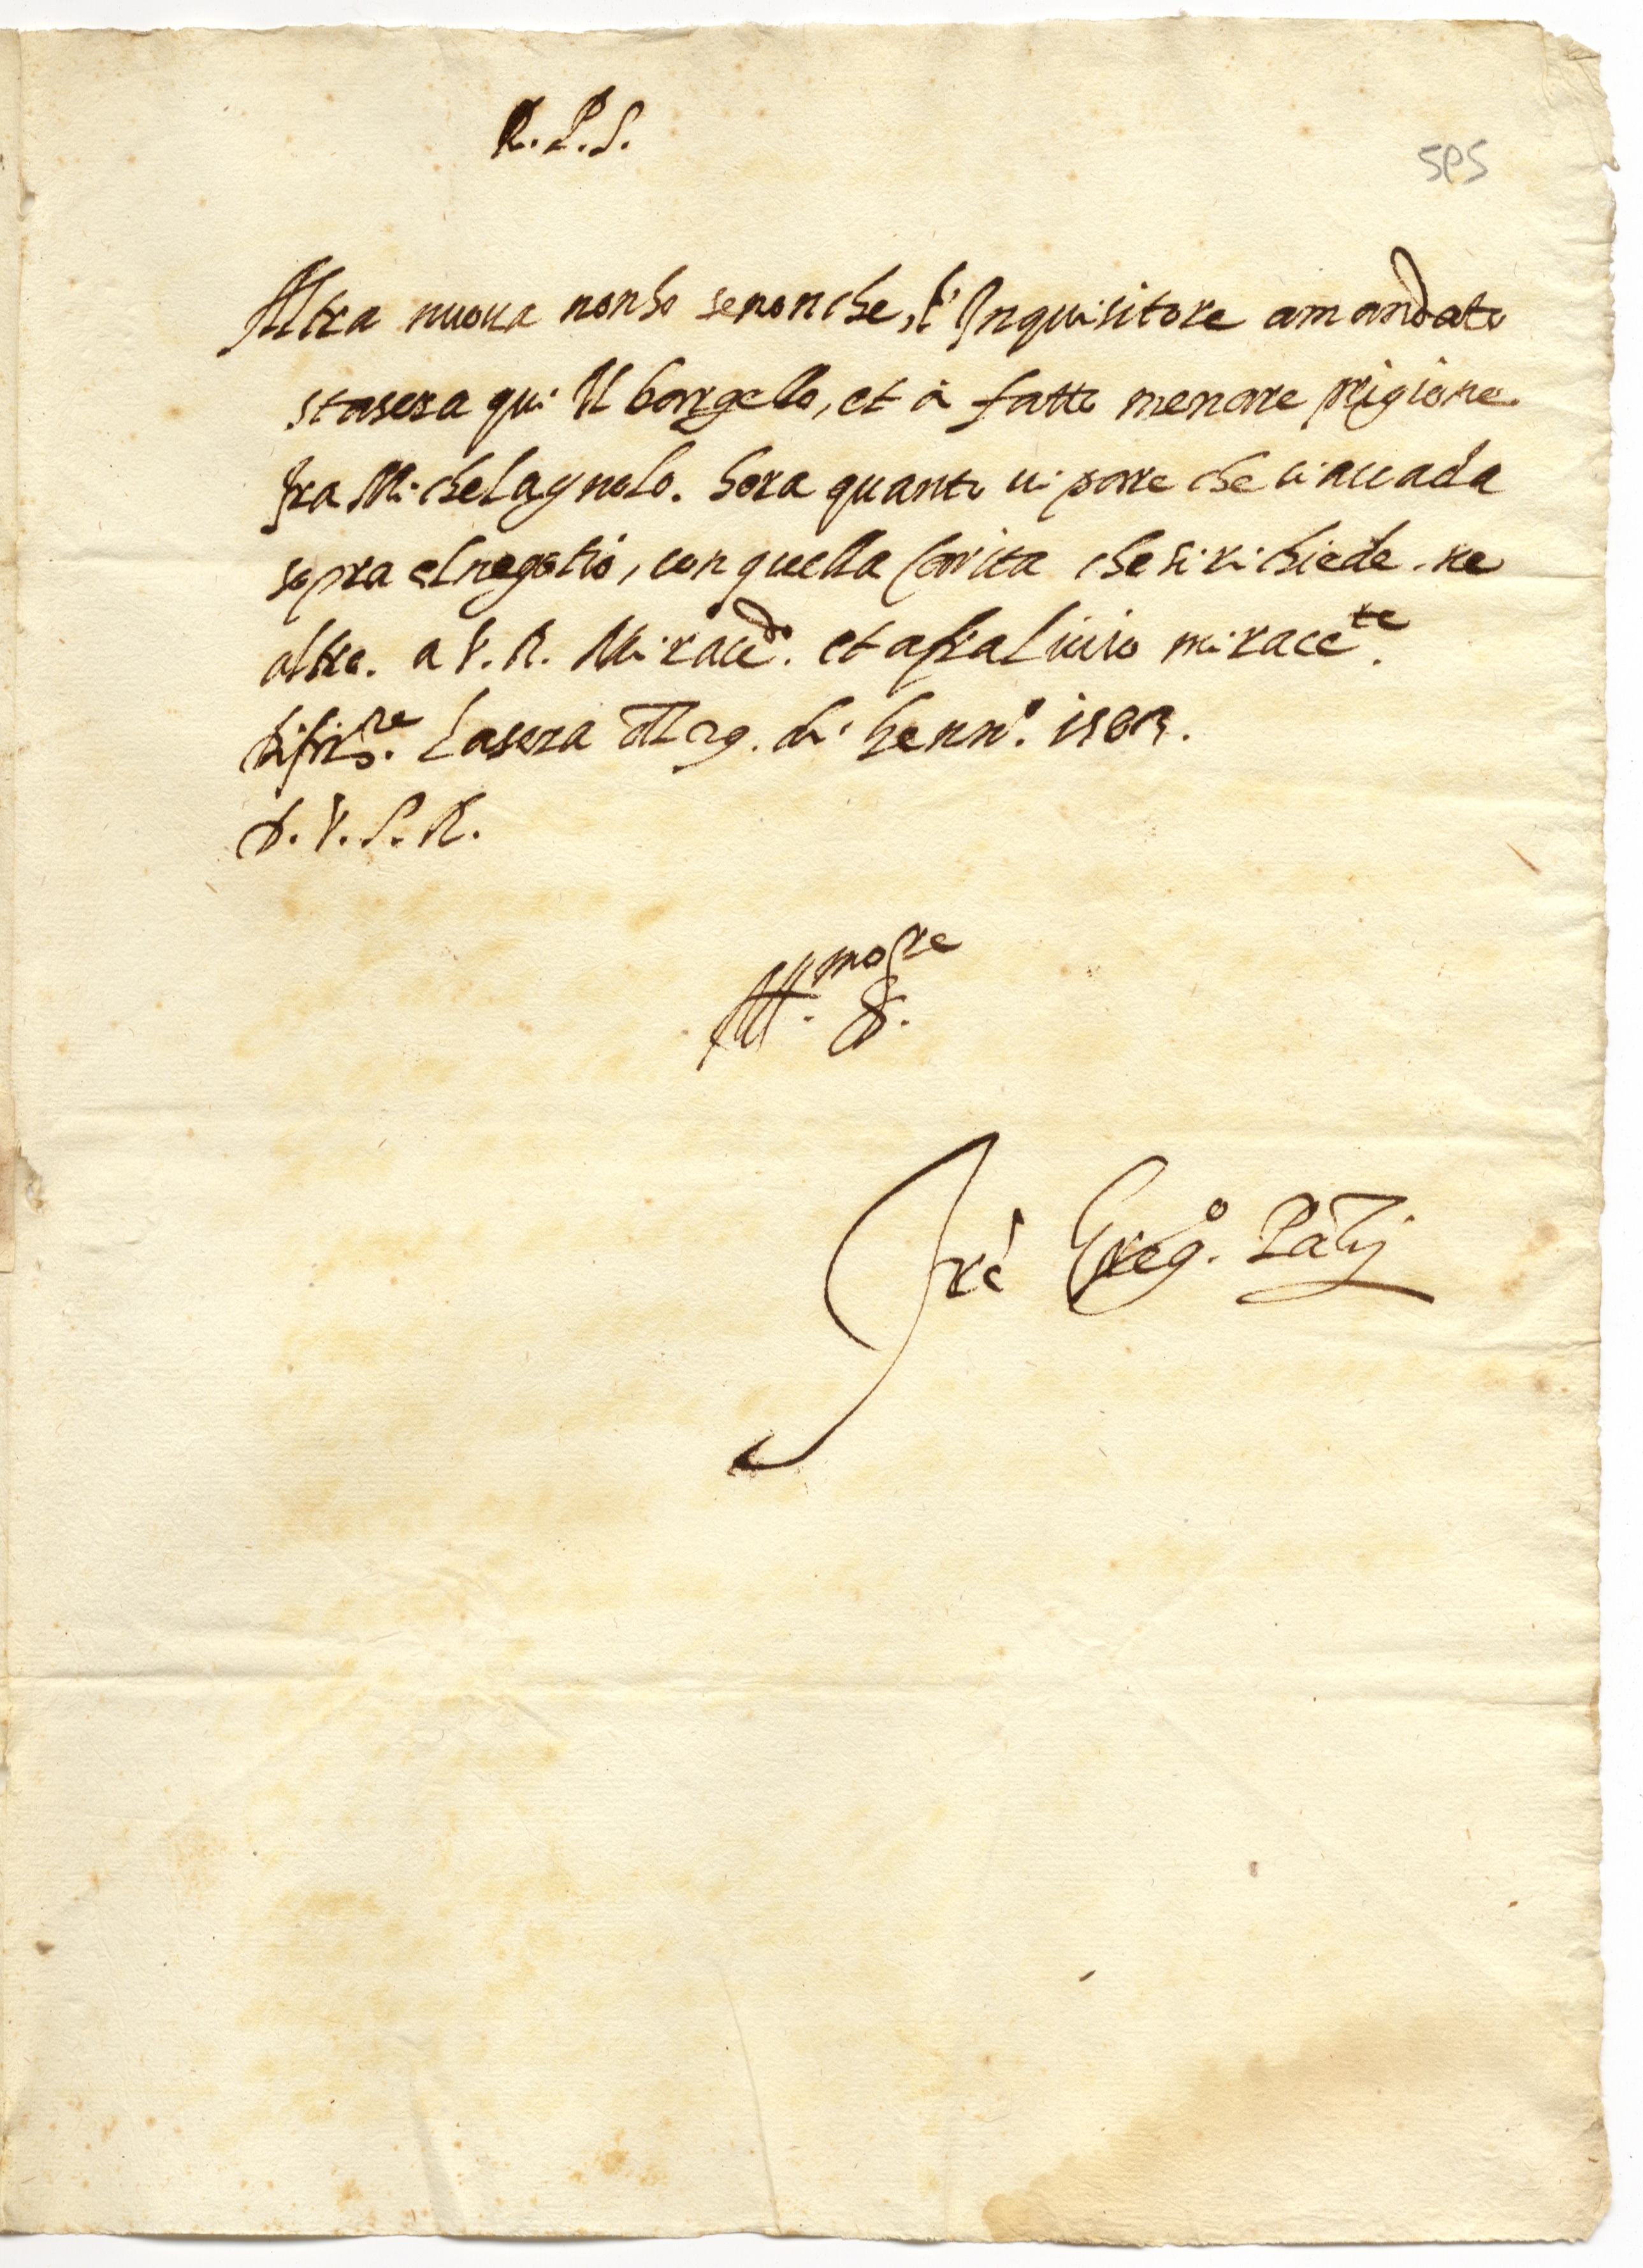 R. P. S.
595
Altra nuova nonho senonche, l'Inquisitore amandato
stasera qui Il bargello, et à fatto menare prigione
fra Michelagnolo. hora quanto vi pare che ci accada
sopra elnegotio, con quella carita che si richiede. ne
altro. a V. R. Mi racc.do et afra Livio mi racc.te
La sera 29. di Genn.o
D. V. P. R.
Aff.mo
Fra Greg.o